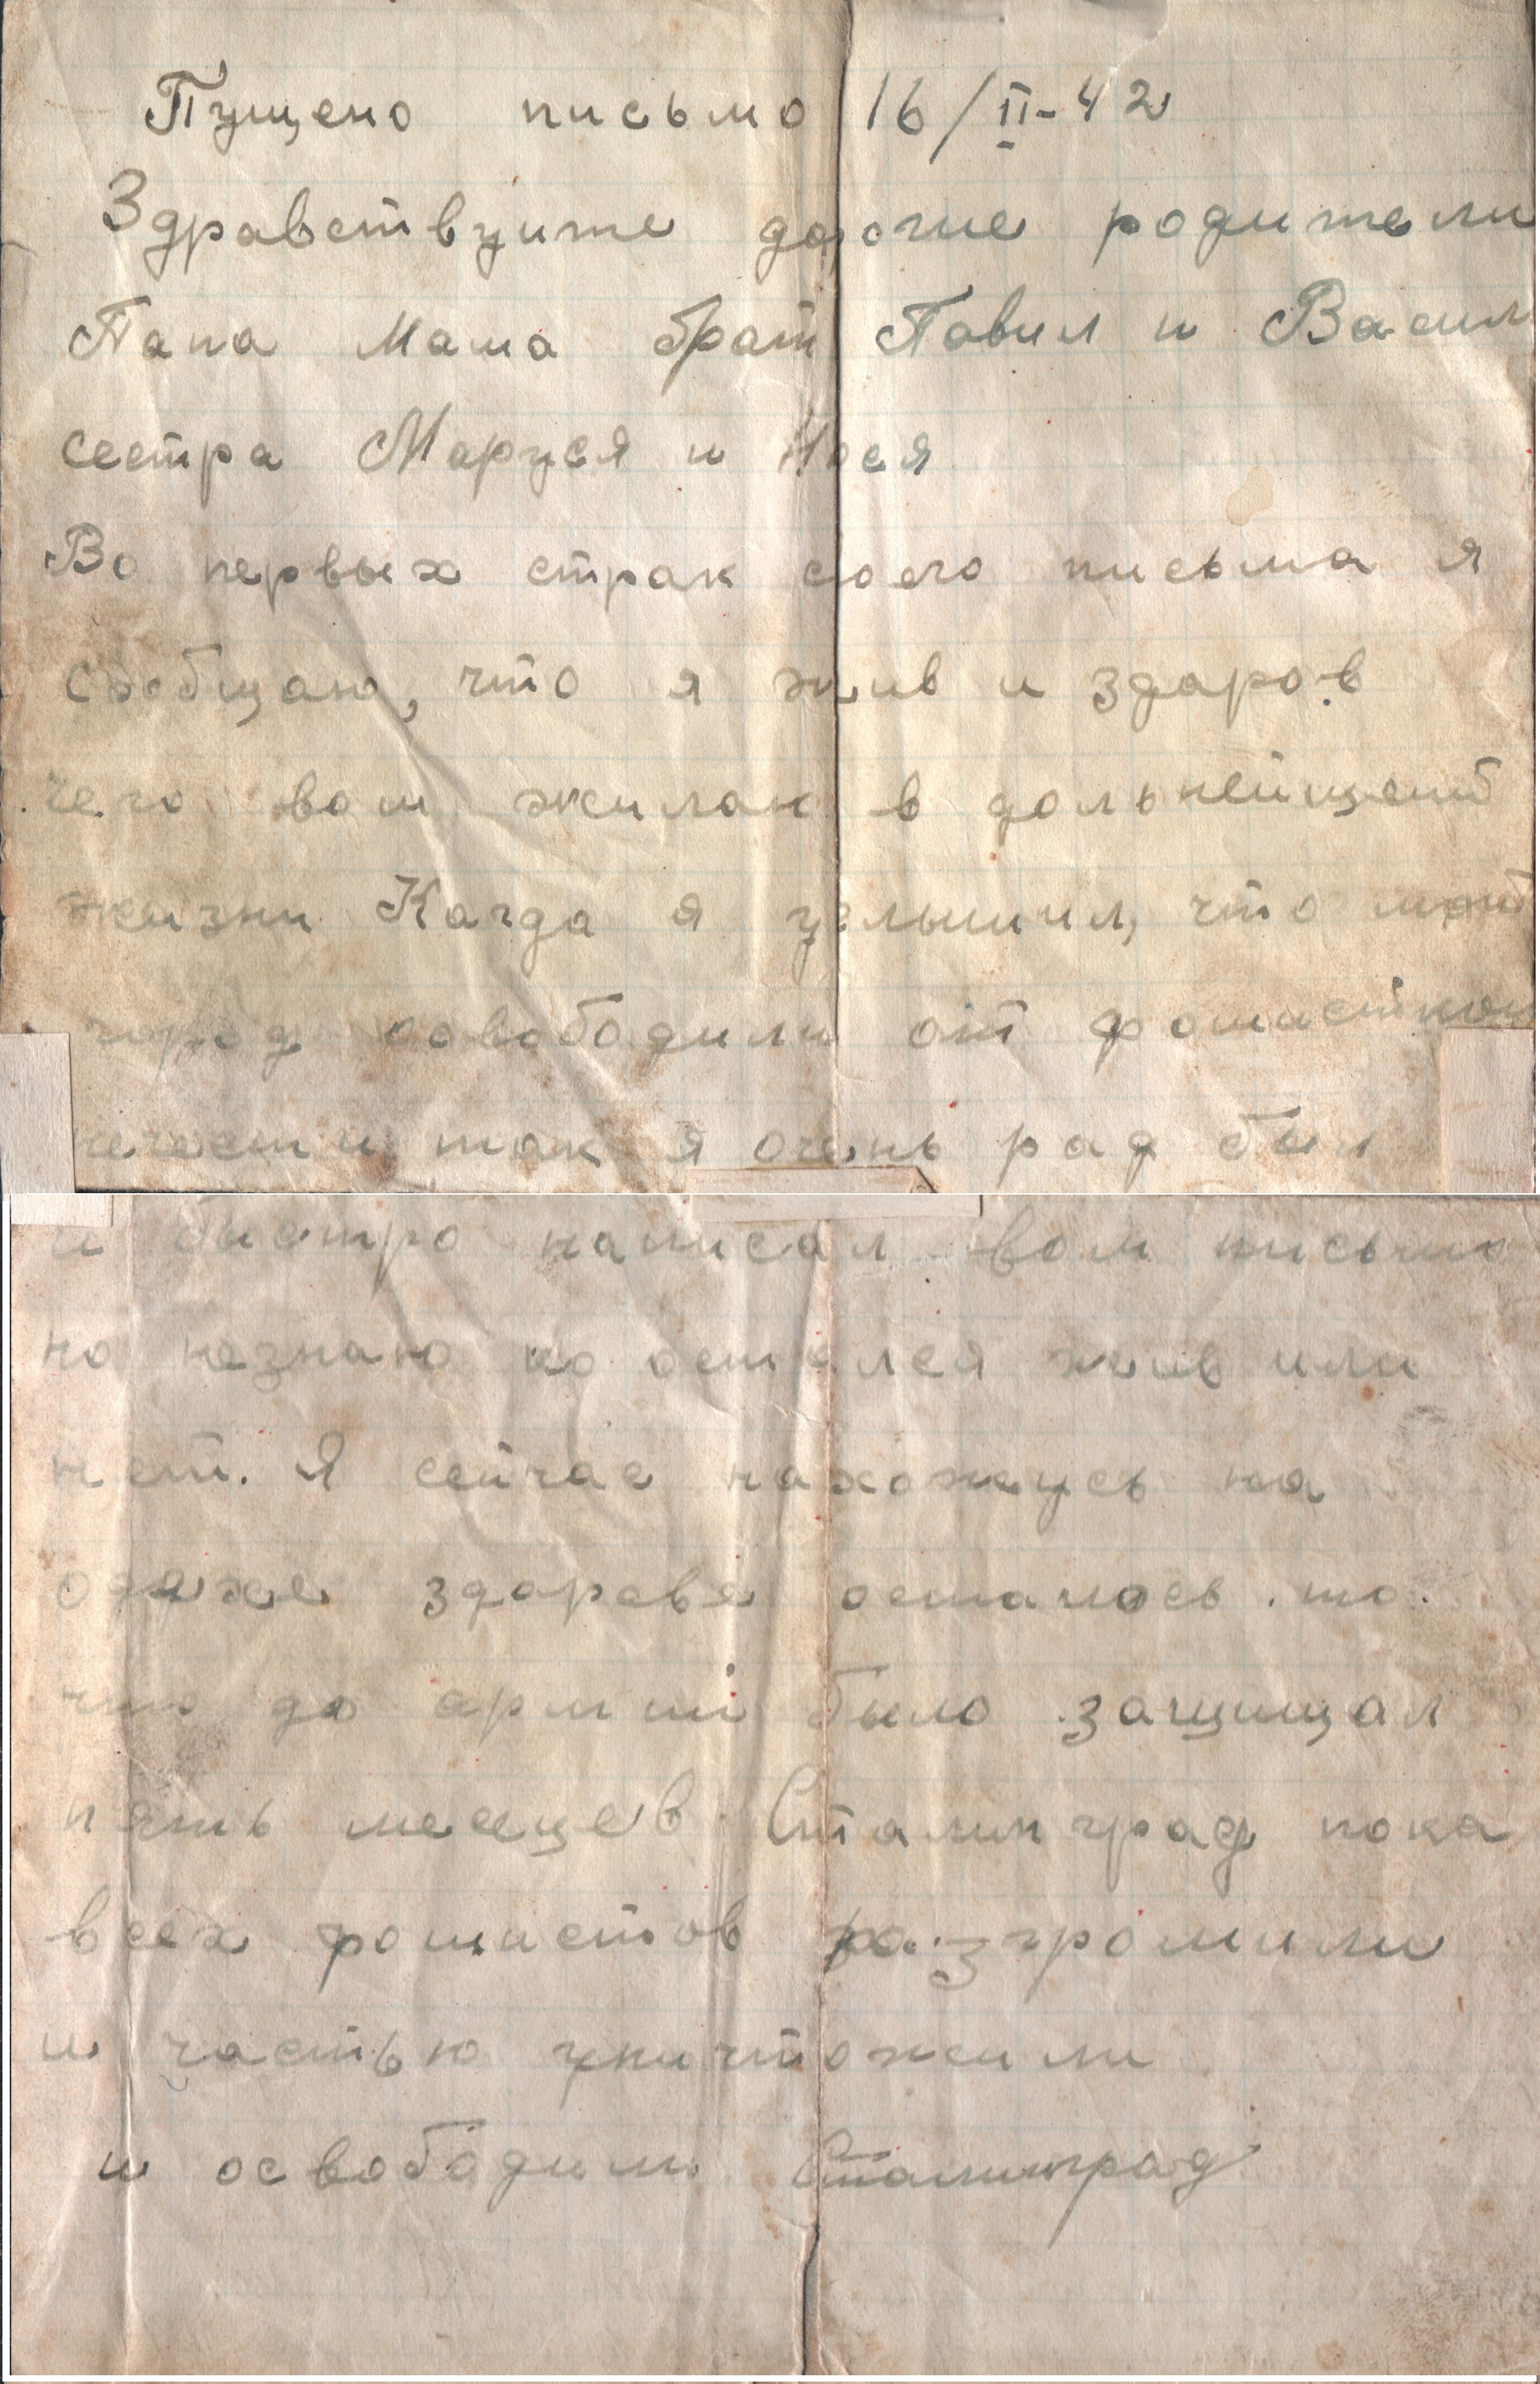 Пущено письмо 16/II-42
Здравствуите дорогие родители
Папа Мама брат Павил и Васил
сестра Маруся и
Во первых страк своего письма я
сообщаю, что я жив и здаров
чего вам жилаю в дальнейщей
жизни Кагда я услышил, что мой
город освободили от
нечести так я очень рад был
и быстро написал вам письмо
но незнаю кто остался жив или
нет. Я сейчас нахожусь на
здаровья осталось то
что до армии было защищал
пять месяцев Сталинград пока
всех фошистов разгромили
и частью уничтожили
и освободили Сталинград